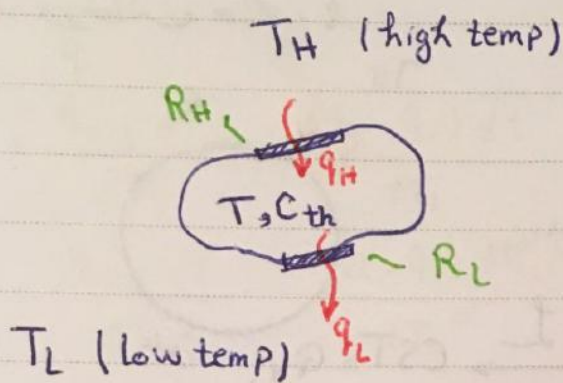 T_H (high temp)
R_H
q_H
T, C_th
R_L
q_L
T_L (low temp)